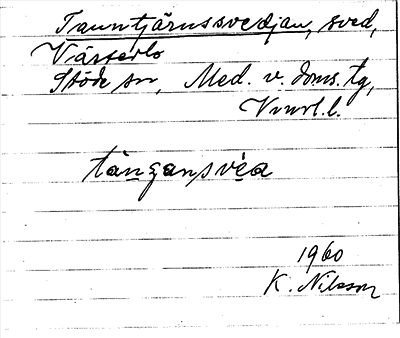 Tanntjärnssvedjan, sved,
Västerlo
Stöde sn, Med. v. doms. tg,
Vnrl. l.
tàngansvéa
1960
K. Nilsson